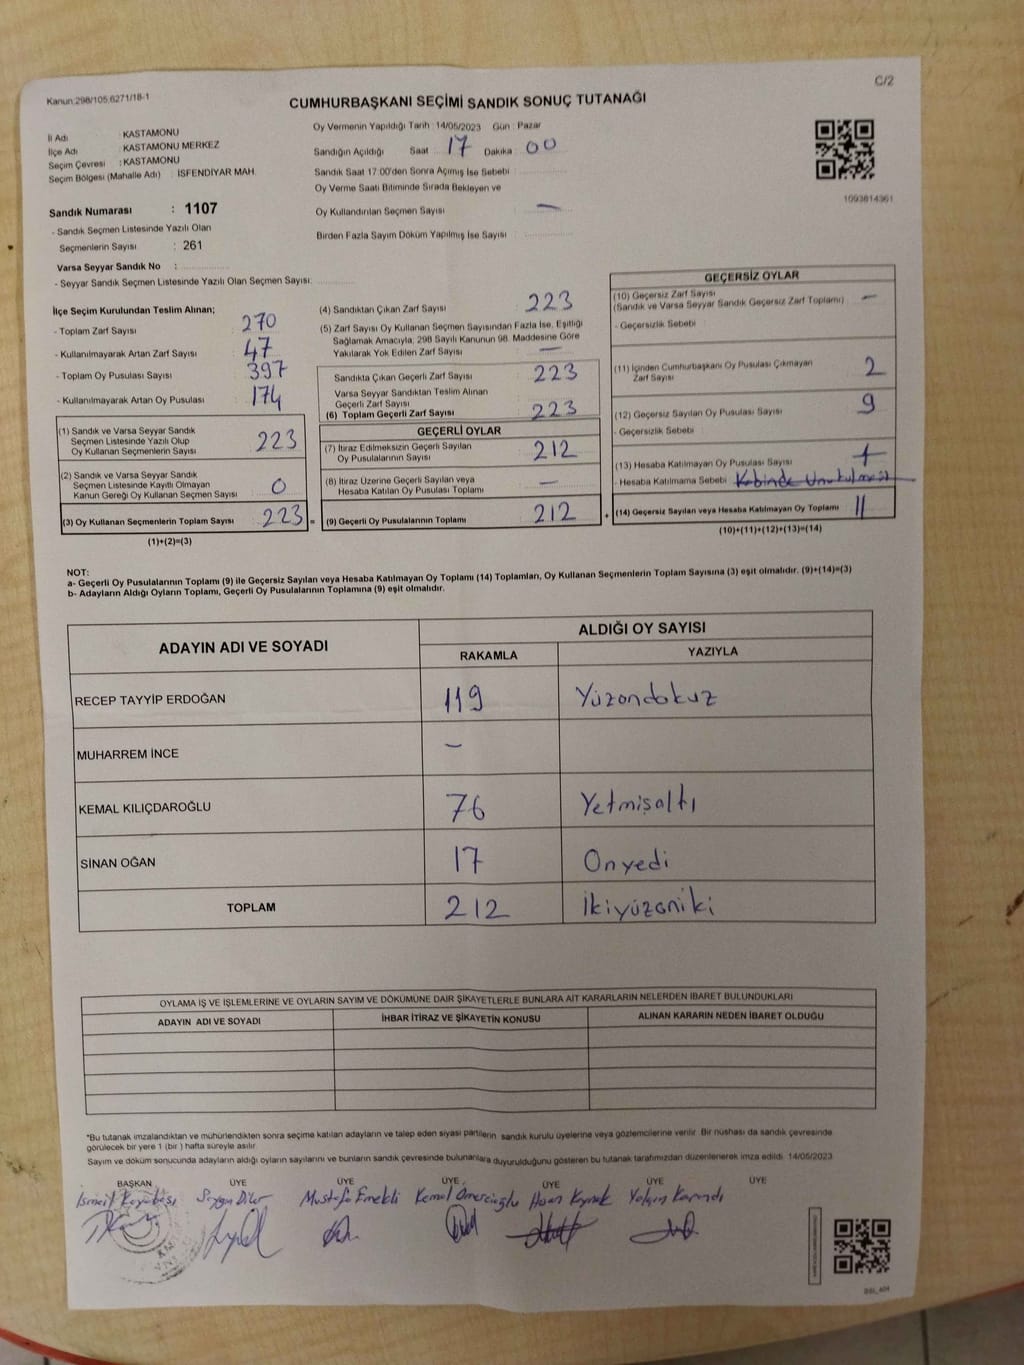 C/2
Kanun:298/105,6271/18-1
CUMHURBAŞKANI SEÇİMİ SANDIK SONUÇ TUTANAĞI
İl Adı : KASTAMONU
İlçe Adı : KASTAMONU MERKEZ
Seçim Çevresi : KASTAMONU
Seçim Bölgesi (Mahalle Adı) : İSFENDİYAR MAH.
Oy Vermenin Yapıldığı Tarih : 14/05/2023 Gün : Pazar
Sandığın Açıldığı Saat 17 Dakika 00
Sandık Saat 17:00'den Sonra Açılmış İse Sebebi :
Oy Verme Saati Bitiminde Sırada Bekleyen ve
Oy Kullandırılan Seçmen Sayısı : —
Birden Fazla Sayım Döküm Yapılmış İse Sayısı :
1093814361
Sandık Numarası : 1107
- Sandık Seçmen Listesinde Yazılı Olan
Seçmenlerin Sayısı : 261
Varsa Seyyar Sandık No :
- Seyyar Sandık Seçmen Listesinde Yazılı Olan Seçmen Sayısı:
İlçe Seçim Kurulundan Teslim Alınan;
- Toplam Zarf Sayısı 270
- Kullanılmayarak Artan Zarf Sayısı 47
- Toplam Oy Pusulası Sayısı 397
- Kullanılmayarak Artan Oy Pusulası 174
(1) Sandık ve Varsa Seyyar Sandık
Seçmen Listesinde Yazılı Olup
Oy Kullanan Seçmenlerin Sayısı 223
(2) Sandık ve Varsa Seyyar Sandık
Seçmen Listesinde Kayıtlı Olmayan
Kanun Gereği Oy Kullanan Seçmen Sayısı 0
(3) Oy Kullanan Seçmenlerin Toplam Sayısı 223 =
(1)+(2)=(3)
(4) Sandıktan Çıkan Zarf Sayısı 223
(5) Zarf Sayısı Oy Kullanan Seçmen Sayısından Fazla İse, Eşitliği
Sağlamak Amacıyla, 298 Sayılı Kanunun 98. Maddesine Göre
Yakılarak Yok Edilen Zarf Sayısı —
Sandıkta Çıkan Geçerli Zarf Sayısı 223
Varsa Seyyar Sandıktan Teslim Alınan
Geçerli Zarf Sayısı
(6) Toplam Geçerli Zarf Sayısı 223
GEÇERLİ OYLAR
(7) İtiraz Edilmeksizin Geçerli Sayılan
Oy Pusulalarının Sayısı 212
(8) İtiraz Üzerine Geçerli Sayılan veya
Hesaba Katılan Oy Pusulası Toplamı —
(9) Geçerli Oy Pusulalarının Toplamı 212 +
GEÇERSİZ OYLAR
(10) Geçersiz Zarf Sayısı
(Sandık ve Varsa Seyyar Sandık Geçersiz Zarf Toplamı) —
- Geçersizlik Sebebi
(11) İçinden Cumhurbaşkanı Oy Pusulası Çıkmayan
Zarf Sayısı 2
(12) Geçersiz Sayılan Oy Pusulası Sayısı 9
- Geçersizlik Sebebi :
(13) Hesaba Katılmayan Oy Pusulası Sayısı
- Hesaba Katılmama Sebebi Kabinde Unutulması
(14) Geçersiz Sayılan veya Hesaba Katılmayan Oy Toplamı 11
(10)+(11)+(12)+(13)=(14)
NOT:
a- Geçerli Oy Pusulalarının Toplamı (9) ile Geçersiz Sayılan veya Hesaba Katılmayan Oy Toplamı (14) Toplamları, Oy Kullanan Seçmenlerin Toplam Sayısına (3) eşit olmalıdır. (9)+(14)=(3)
b- Adayların Aldığı Oyların Toplamı, Geçerli Oy Pusulalarının Toplamına (9) eşit olmalıdır.
ADAYIN ADI VE SOYADI ALDIĞI OY SAYISI
RAKAMLA YAZIYLA
RECEP TAYYİP ERDOĞAN 119 Yüzondokuz
MUHARREM İNCE —
KEMAL KILIÇDAROĞLU 76 Yetmişaltı
SİNAN OĞAN 17 Onyedi
TOPLAM 212 İkiyüzoniki
OYLAMA İŞ VE İŞLEMLERİNE VE OYLARIN SAYIM VE DÖKÜMÜNE DAİR ŞİKAYETLERLE BUNLARA AİT KARARLARIN NELERDEN İBARET BULUNDUKLARI
ADAYIN ADI VE SOYADI İHBAR İTİRAZ VE ŞİKAYETİN KONUSU ALINAN KARARIN NEDEN İBARET OLDUĞU
*Bu tutanak imzalandıktan ve mühürlendikten sonra seçime katılan adayların ve talep eden siyasi partilerin sandık kurulu üyelerine veya gözlemcilerine verilir. Bir nüshası da sandık çevresinde
görülecek bir yere 1 (bir) hafta süreyle asılır.
Sayım ve döküm sonucunda adayların aldığı oyların sayılarını ve bunların sandık çevresinde bulunanlara duyurulduğunu gösteren bu tutanak tarafımızdan düzenlenerek imza edildi. 14/05/2023
BAŞKAN ÜYE ÜYE ÜYE ÜYE ÜYE ÜYE
İsmail Seygın Diler Mustafa Emekli Kemal Ömercioğlu Hasan Kaynak Yalçın